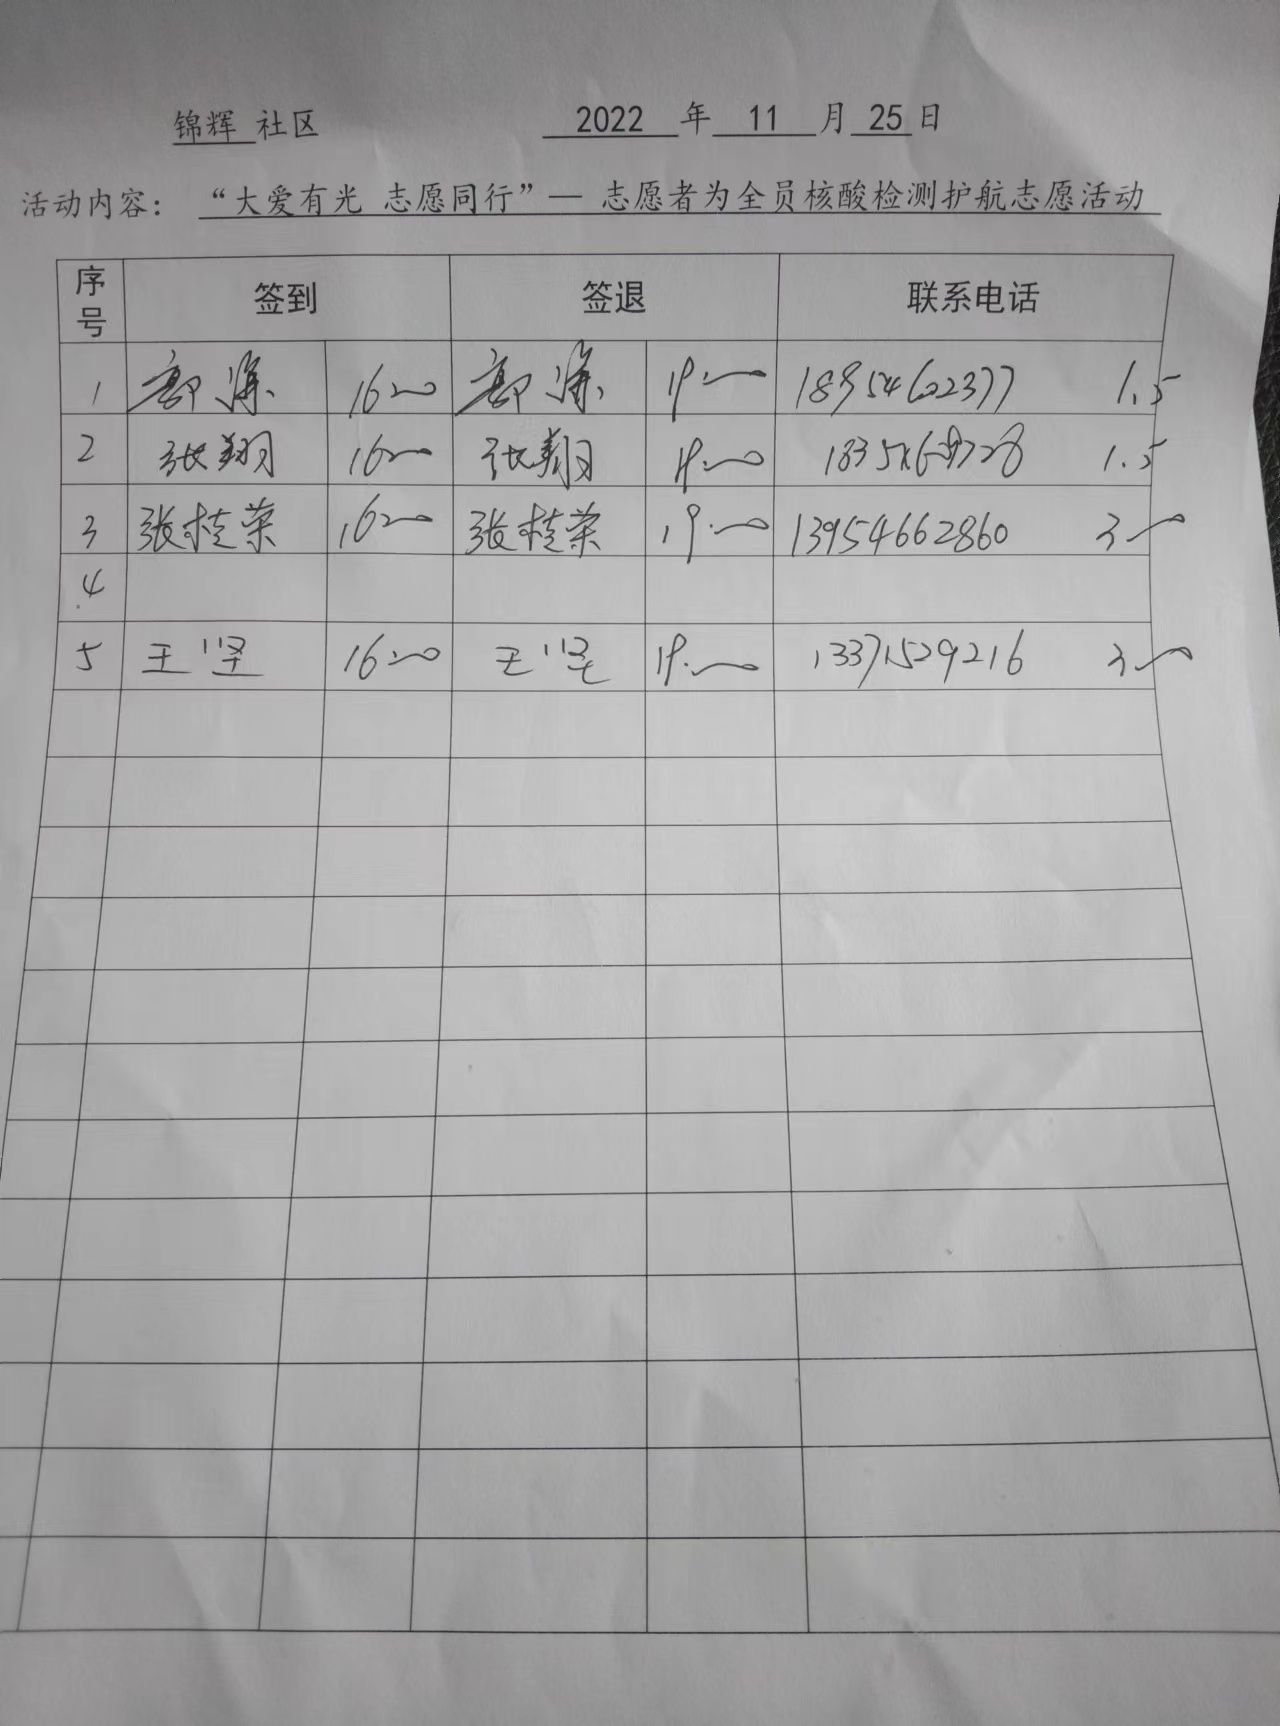 锦辉 社区 2022 年 11 月 25 日
活动内容： “大爱有光 志愿同行”— 志愿者为全员核酸检测护航志愿活动
序号 签到 签退 联系电话
1 16:00 19:00 18954602377 1.5
2 张翔 16:00 张翔 19:00 1.5
3 张桂荣 16:00 张桂荣 19:00 13954662860 3:00
4
5 王坚 16:00 王坚 19:00 13371529216 3:00